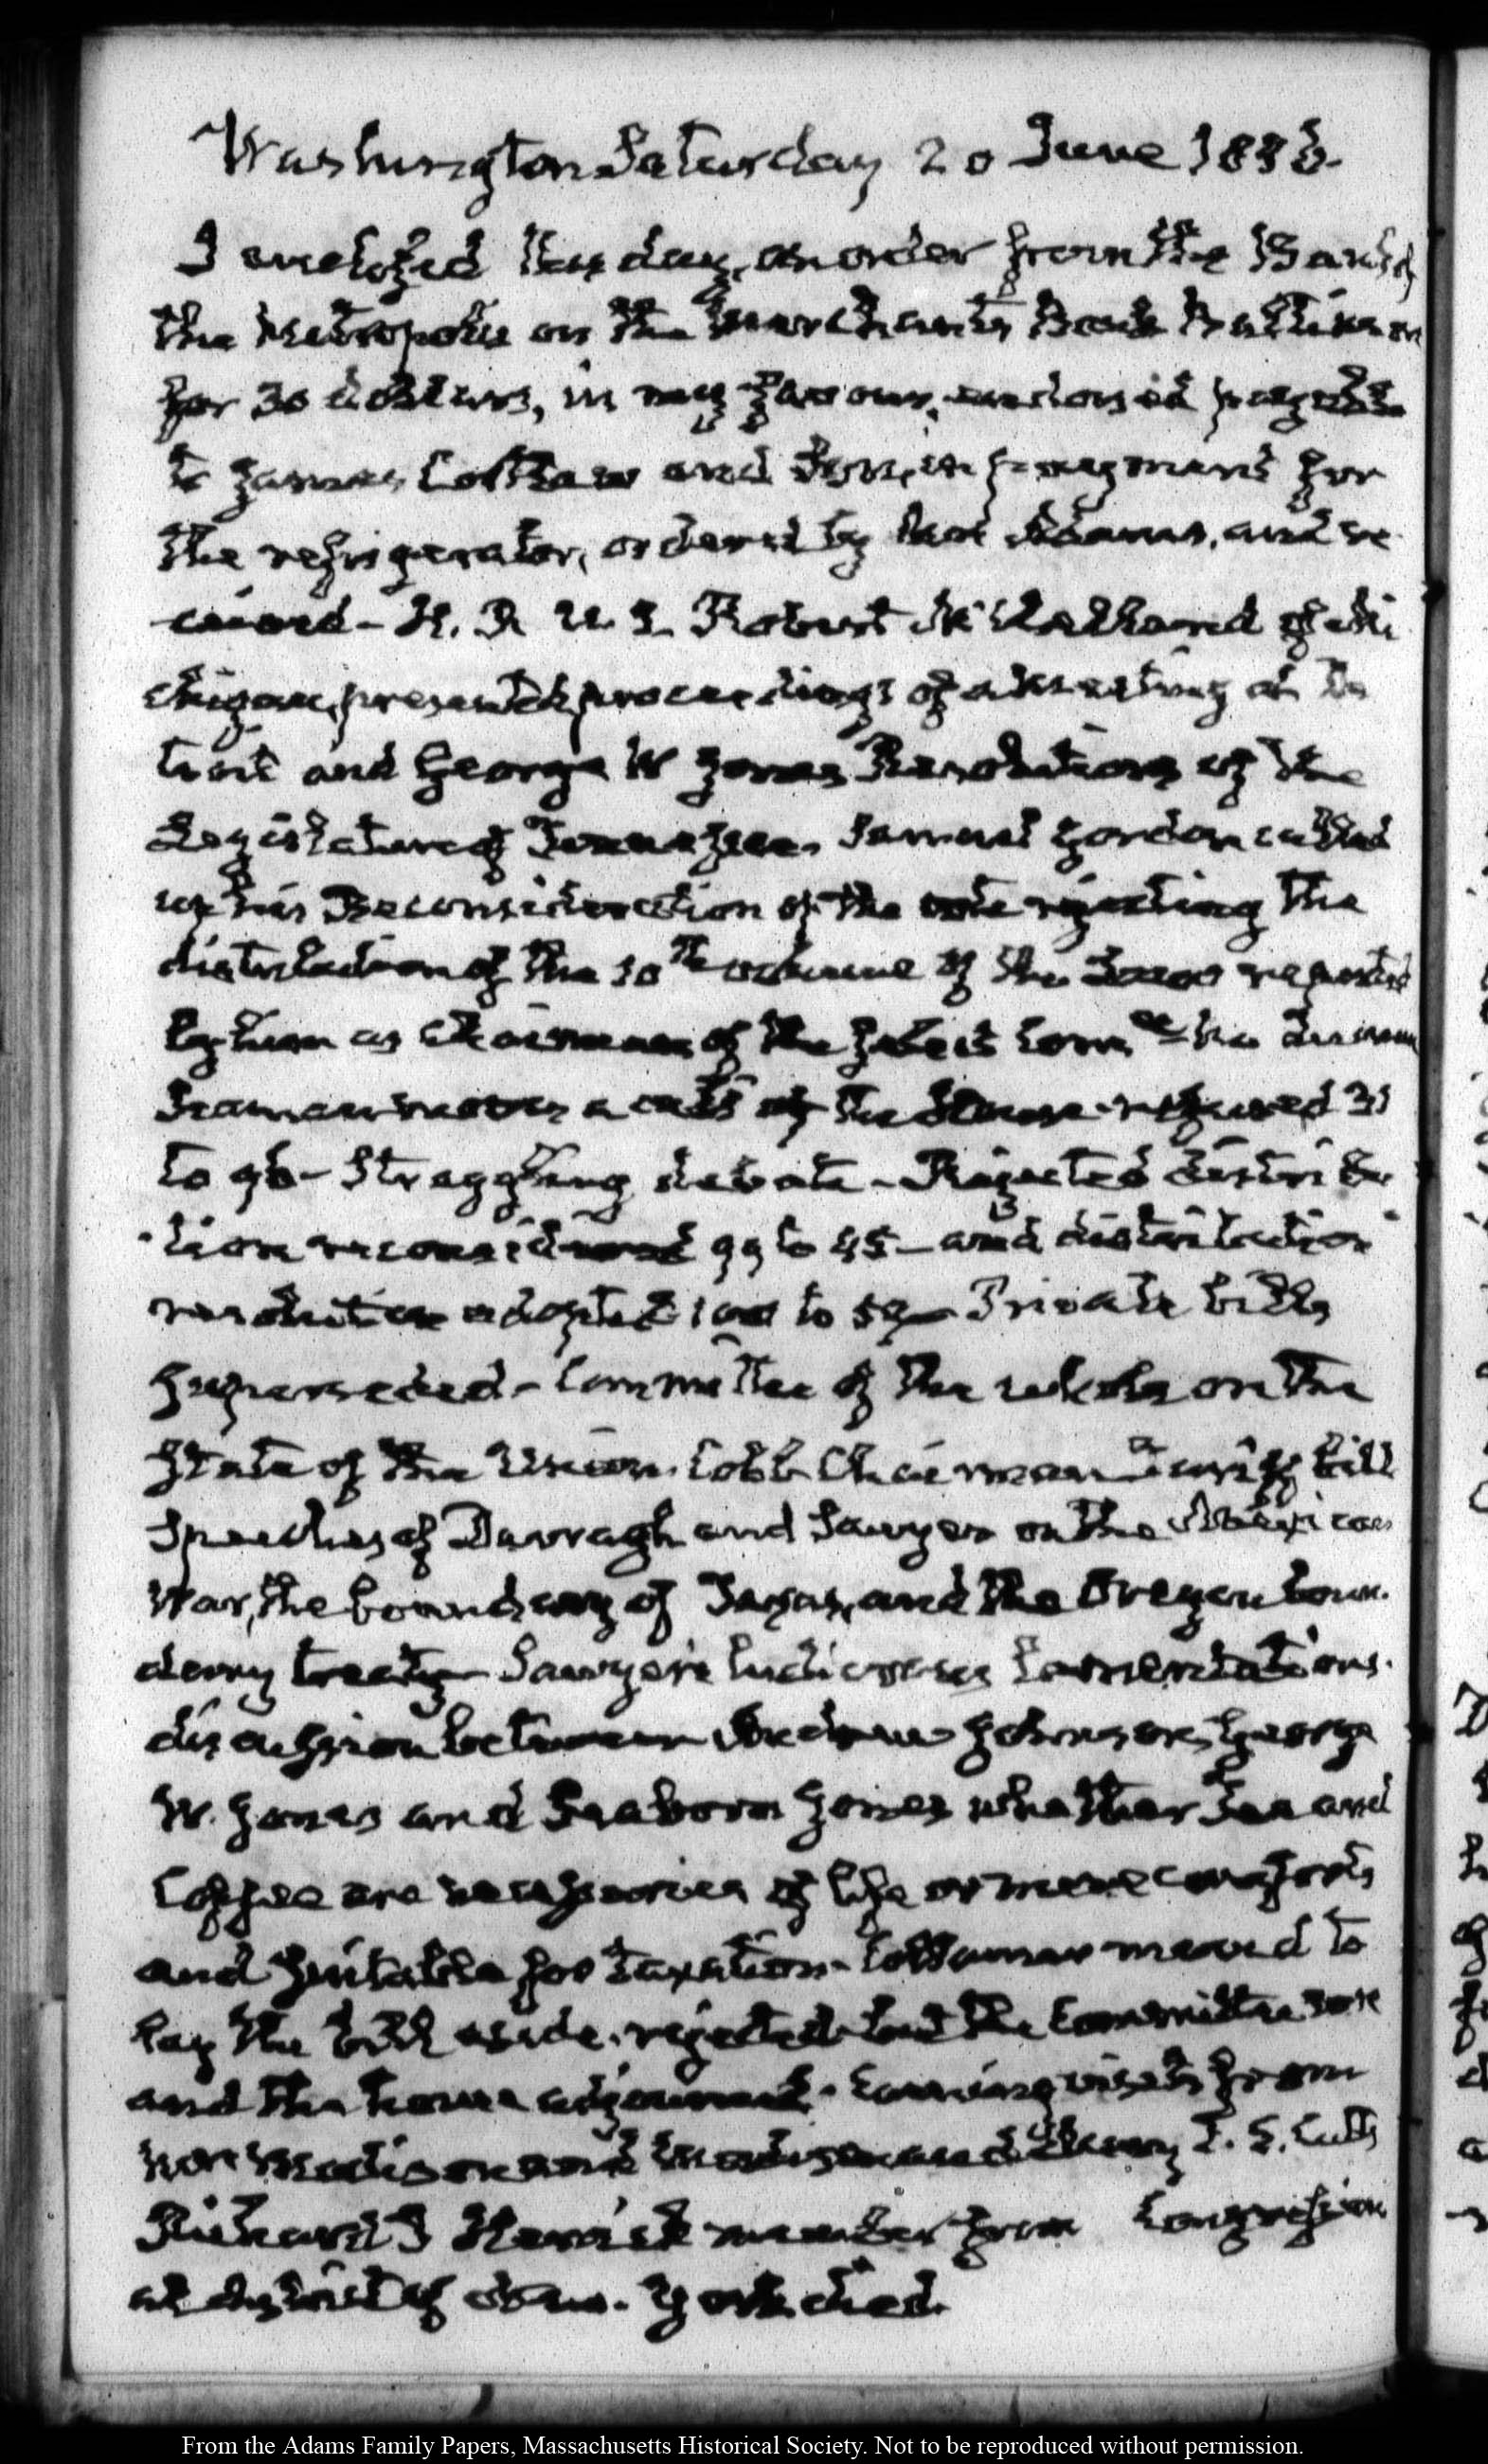 Washington Saturday 20 June 1846.
I enclosed this day, an order from the Bank of
the Metropolis on the Merchants Bank Baltimore
for 30 dollars, in my favour, endorsed payable
to James Cortlan and Son, in payment for
the refrigerator, ordered by Mrs Adams, and re
ceived – H. R. U. S. Robert McClelland of Mi
chigan, presented proceedings of a meeting at De
troit and George W Jones Resolutions of the
Legislature of Tennessee. Samuel Gordon called
up his Reconsideration of the vote rejecting the
distribution of the 10th volume of the Laws reported
by him as Chairman of the joint Comee
moves a call of the House refused 31
to 96 – Straggling debate – Rejected distribu
tion reconsidered 99 to 45 – and distribution
resolution adopted 100 to 59 – Private bills
superseded – Committee of the whole on the
State of the Union. Cobb Chairman Tariff bill
Speeches of Darragh and Sawyer on the Mexican
War, the boundary of Texas, and the Oregon boun-
dary treaty – Sawyer's ludicrous lamentations.
discussion between Andrew Johnson, George
W. Jones and Seaborn Jones whether Tea and
Coffee are necessaries of life or mere comforts
and suitable for taxation – Collamer moved to
lay the bill aside. rejected but the Committee rose
and the house adjourned. Evening visits from
Mrs Madison and Madison and Mary E. E. Cutts
Richard P Herrick member from Congression
al district of New-York died.